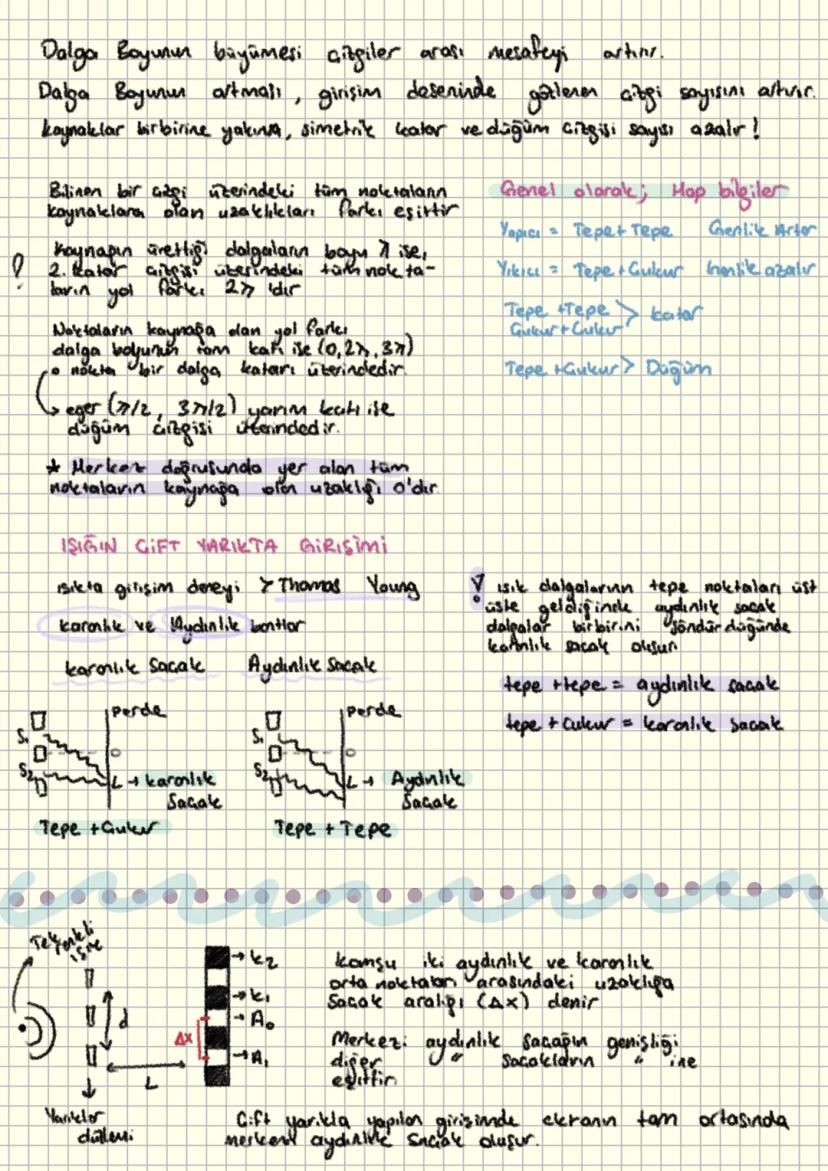 Dalga Boyunun büyümesi çizgiler arası mesafeyi artırır.
Dalga Boyunun artması, girişim deseninde gözlenen çizgi sayısını artırır.
kaynaklar birbirine yakınsa, simetrik katar ve düğüm çizgisi sayısı azalır!
Bilinen bir çizgi üzerindeki tüm noktaların
kaynaklara olan uzaklıkları farkı eşittir
! Kaynağın ürettiği dalgaların boyu λ ise,
2. katar çizgisi üzerindeki tüm nokta-
ların yol farkı 2λ 'dır
Noktaların kaynağa olan yol farkı
dalga boyunun tam katı ise (0, 2λ, 3λ)
o nokta bir dalga katarı üzerindedir.
eğer (λ/2, 3λ/2) yarım katı ise
düğüm çizgisi üzerindedir.
* Merkez doğrusunda yer alan tüm
noktaların kaynağa olan uzaklığı 0'dır.
Genel olarak; Hap bilgiler
Yapıcı = Tepe+Tepe Genlik Artar
Yıkıcı = Tepe+Çukur Genlik azalır
Tepe +Tepe
Çukur+Çukur > katar
Tepe +Çukur > Düğüm
IŞIĞIN ÇİFT YARIKTA GİRİŞİMİ
ışıkta girişim deneyi > Thomas Young
karanlık ve Aydınlık bantlar
karanlık Saçak Aydınlık Saçak
! ışık dalgalarının tepe noktaları üst
üste geldiğinde aydınlık saçak
dalgalar birbirini söndürdüğünde
karanlık saçak oluşur
tepe +tepe = aydınlık saçak
tepe + çukur = karanlık saçak
S₁
S₂
perde
o
L → karanlık
Saçak
Tepe +Çukur
S₁
S₂
perde
o
L → Aydınlık
Saçak
Tepe + Tepe
Tek renkli
ışık
d
L
Yarıklar
düzlemi
Δx
→ k₂
→ k₁
→ A₀
→ A₁
komşu iki aydınlık ve karanlık
orta noktaları arasındaki uzaklığa
Saçak aralığı (Δx) denir
Merkezi aydınlık saçağın genişliği
diğer " saçakların " ine
eşittir.
Çift yarıkla yapılan girişimde ekranın tam ortasında
merkezi aydınlık saçak oluşur.